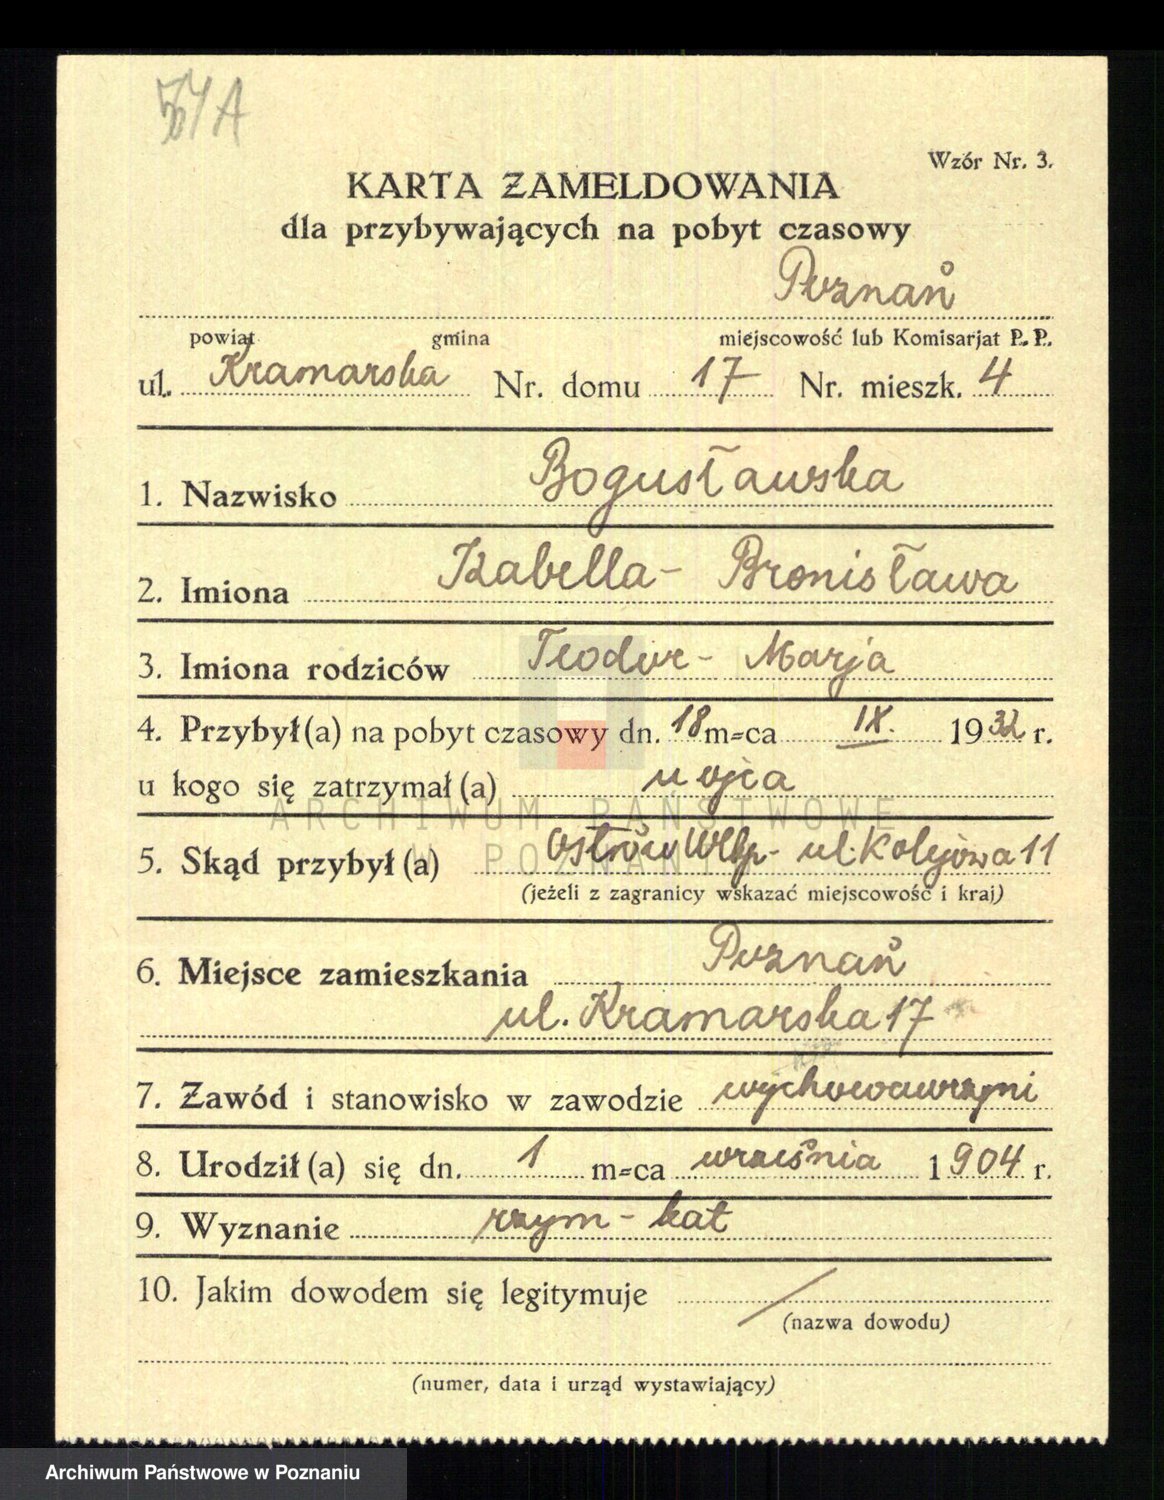 Wzór Nr. 3.
KARTA ZAMELDOWANIA
dla przybywających na pobyt czasowy
Poznań
powiat gmina miejscowość lub Komisarjat P. P.
ul. Kramarska Nr. domu 17 Nr. mieszk. 4
1. Nazwisko Bogusławska
2. Imiona Izabella - Bronisława
3. Imiona rodziców Teodor - Marja
4. Przybył(a) na pobyt czasowy dn. 18 m-ca IX. 1932 r.
u kogo się zatrzymał(a) u ojca
ARCHIWUM PAŃSTWOWE
W POZNANIU
5. Skąd przybył(a) Ostrów Wlkp. ul. Kolejowa 11
(jeżeli z zagranicy wskazać miejscowość i kraj)
6. Miejsce zamieszkania Poznań
ul. Kramarska 17
7. Zawód i stanowisko w zawodzie wychowawczyni
8. Urodził(a) się dn. 1 m-ca września 1904 r.
9. Wyznanie rzym - kat
10. Jakim dowodem się legitymuje /
(nazwa dowodu)
(numer, data i urząd wystawiający)
Archiwum Państwowe w Poznaniu